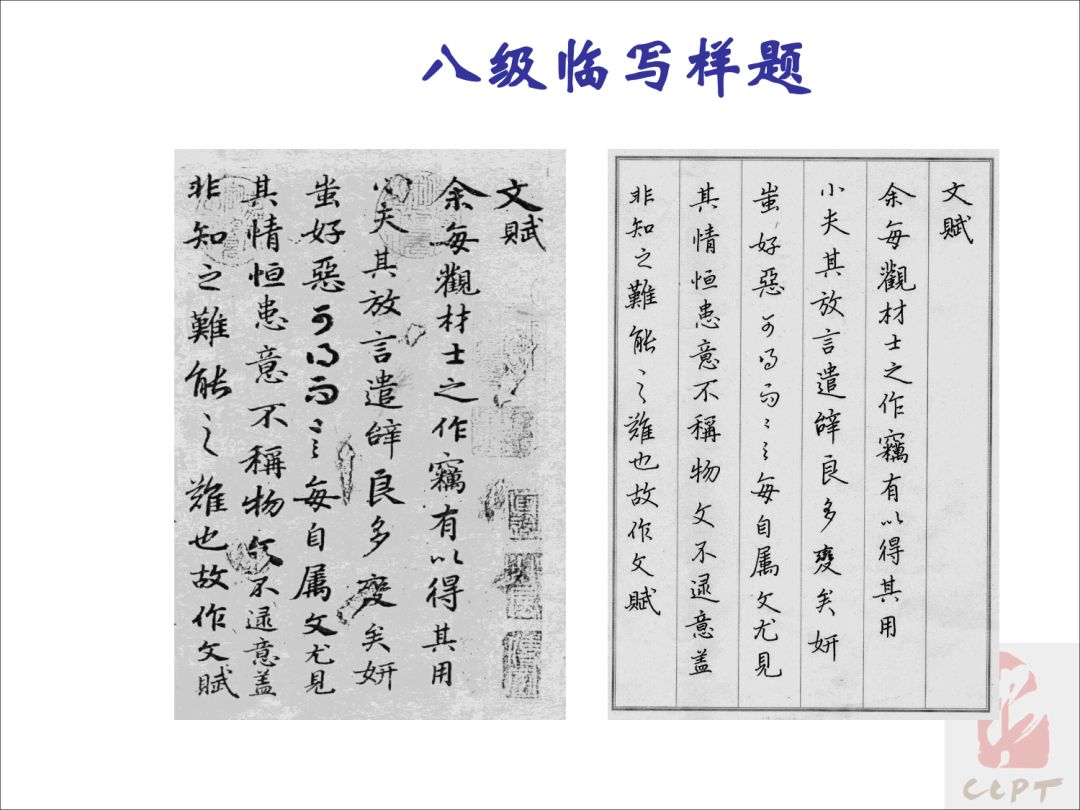 八级临写样题
文賦
余每觀材士之作竊有以得其用
心夫其放言遣辭良多變矣妍
蚩好惡可得而言每自属文尤見
其情恒患意不稱物文不逮意盖
非知之難能之難也故作文賦
文賦
余每觀材士之作竊有以得其用
心夫其放言遣辭良多變矣妍
蚩好惡可得而言每自属文尤見
其情恒患意不稱物文不逮意盖
非知之難能之難也故作文賦
CCPT